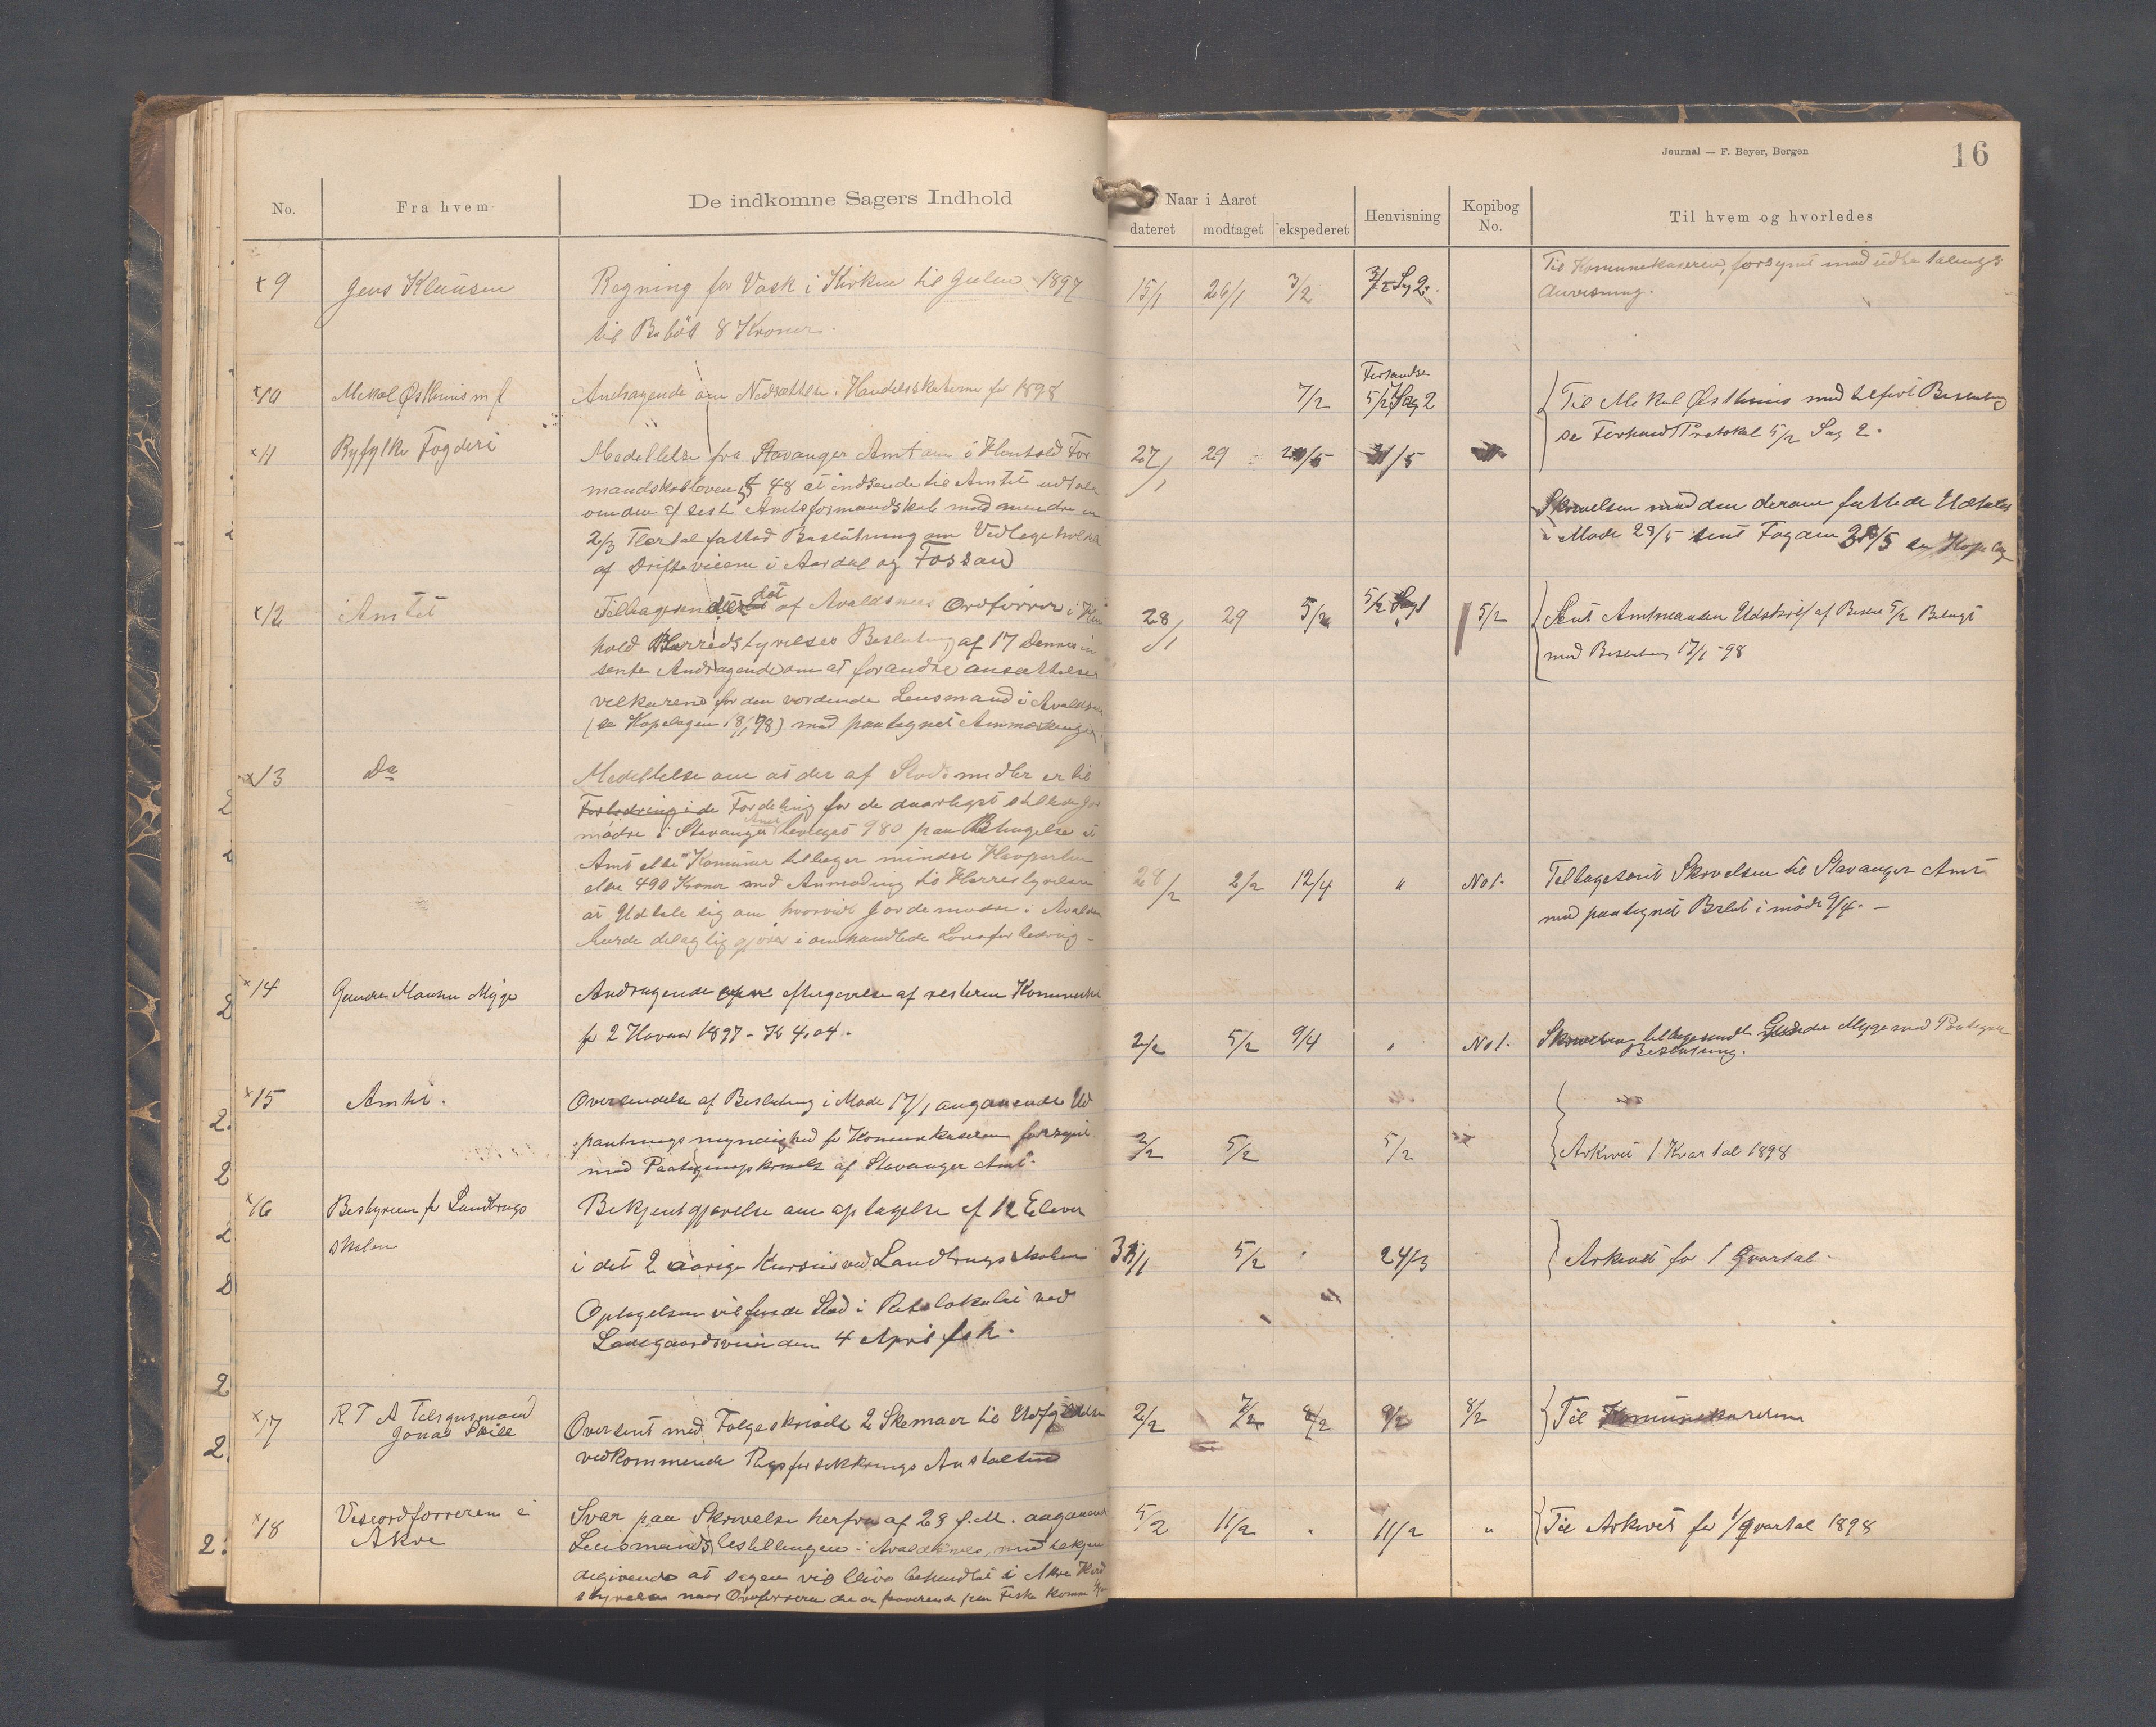 Journal — F. Beyer, Bergen
16
No.
Fra hvem
De indkomne Sagers Indhold
Naar i Aaret
dateret
modtaget
ekspederet
Henvisning
Kopibog
No.
Til hvem og hvorledes
x 9 Jens Klausen Regning for Vask i Kirken til Julen 1897 15/1 26/1 3/2 Sag 2. Til Komunekaseren, forsynet med udbetalings
Anvisning.
til Beløb 8 Kroner.
x10 Mekal Østhuus m fl Andragende om Nedsættelse i Handelsskatterne for 1898 7/2 5/2 Sag 2 Til Mekal Østhuus med tilført Beslutning
se Protokol 5/2 Sag 2.
x11 Ryfylke Fogderi Meddellelse fra Stavanger Amt om i Henhold For 27/1 29 31/5
mandskabsloven § 48 at indsende til Amtet udtale
om den af siste Amtsformandskab med mindre en
2/3 Flertal fattad Beslutning om Vedlegeholdel
af Drifteveiene i Aardal og Fossan
Skrivelsen med den derom fattede Udtalelse
i Møde 28/5 sent Fogden
x12 Amtet Tilbagesendt det af Avaldsnes Ordfører i Hen 28/1 29 5/2 5/2 Sag 1 5/2 Sent Amtmanden Udskrift af Beslut 5/2 Bilagt
med Beslutning 17/1 -98
hold Herredstyrelses Beslutning af 17 Dennes in
sente Andragende om at forandre ansættelses
velkarene for den vordende Lensmand i Avaldsnes
(se Kopebogen 18/1 98) med paategnet Anmerkninger
x13 Do Meddellelse om at der af Stads midler er til
Forbedring i de Fordeling for de daarligst stillede Jor
mødre i Stavanger Amt bevieget 980 paa Betingelse at
Amt eller Komuner tilleger mindst Havparten
eller 490 Kroner med Anmodning til Herrestyrelsen 28/2 2/2 12/4 " No 1. Tilbagesent Skrivelsen til Stavanger Amt
med paategnet Beslut i møde 9/4. —
at Udtale sig om hvorvidt Jordemødre i Avaldsn
burde delagtig gjøres i omhandlede Lønsforbedring —
x14 Andragende om eftergivelse af resterende Kommuneskat
for 2 Havaar 1897 - Kr 4.04. 2/2 5/2 9/4 No 1. Skrivelsen tilbagesendt Mygge med Paategnet
Beslutning.
x15 Amtet. Oversendelse af Beslutning i Møde 17/1 angaaende Ud
pantnings myndighed for Komunekaseren forsynet 2/2 5/2 5/2 Arkivet 1 Kvartal 1898
med Paategningskrivelse af Stavanger Amt.
x16 Bestyreren for Landbrugs
skolen
Bekjentgjørelse om optagelse af 12 Elever
i det 2 aarige Kursus ved Landbrugsskolen 31/1 5/2 24/3 Arkivet for 1 Qvartal.
Optagelsen vil finde Sted i Retslokalet ved
Ladegaardsveien den 4 April f k.
x17 R T A Tilsynsmand
Jonas
Oversent med Følgeskrivelse 2 Skemaer til Udfyldelse 2/2 7/2 8/2 9/2 8/2 Til Komunekaseren
vedkommende Rigsforsikkrings Anstalten
x18 Viseordføreren i
Akre
Svar paa Skrivelse herfra af 29 f.M. angaaende 5/2 11/2 11/2 " Til Arkivet for 1/Qvartal 1898
Lensmandsbestillingen i Avaldsnes, med bekjen
delgivende at sagen vil blive behandlet i Akre Herred
styrelse naar Ordføreren der er fraværende paa Fiske kommer